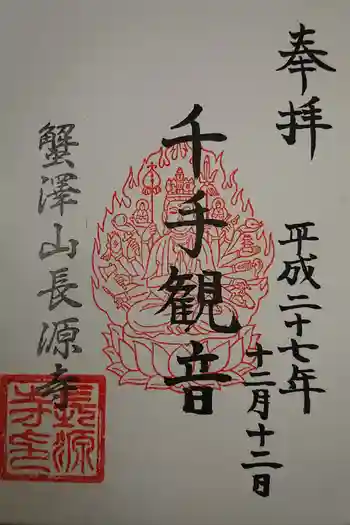 奉拝
平成二十七年
十二月十二日
千手観音
蟹澤山長源寺